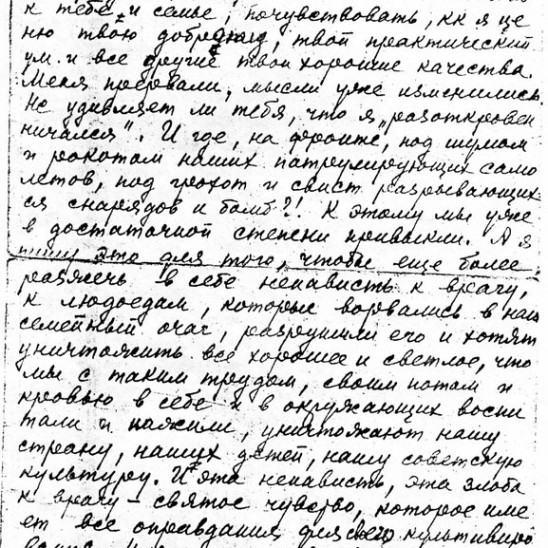 к тебе и семье, почувствовать, кк я це
ню твою доброту, твой практический
ум и все другие твои хорошие качества.
Меня прервали, мысли уже изменились.
Не удивляет ли тебя, что я „разоткровен
ничался". И где, на фронте, под шумом
и рокотом наших патрулирующих само
летов, под грохот и свист разрывающих
ся снарядов и бомб?! К этому мы уже
в достаточной степени привыкли. А я
пишу это для того, чтобы еще более
разжечь в себе ненависть к врагу,
к людоедам, которые ворвались в наш
семейный очаг, разрушили его и хотят
уничтожить все хорошее и светлое, что
мы с таким трудом, своим потом и
кровью в себе и в окружающих воспи
тали и нажили, уничтожают нашу
страну, наших детей, нашу советскую
культуру. И эта ненависть, эта злоба
к врагу – святое чувство, которое име
ет все оправдания для своего культивиро